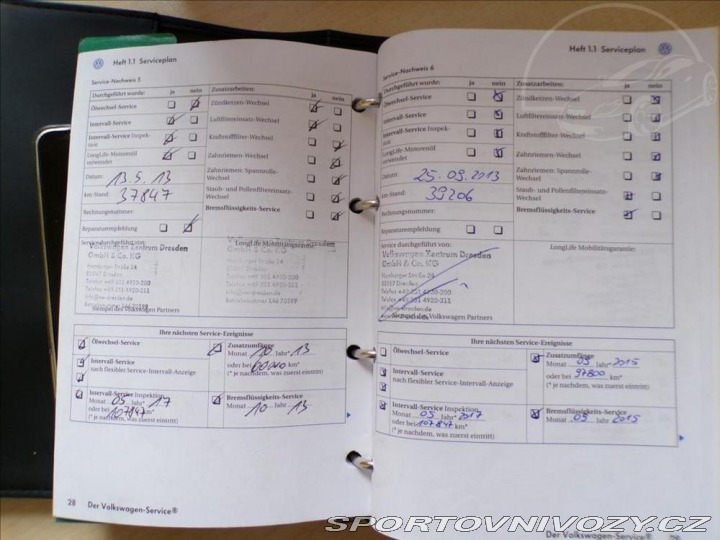 Heft 1.1 Serviceplan
Service-Nachweis 5
Durchgeführt wurde: ja nein Zusatzarbeiten: ja nein
Ölwechsel-Service Zündkerzen-Wechsel
Intervall-Service Luftfiltereinsatz-Wechsel
Intervall-Service Inspek-
tion Kraftstofffilter-Wechsel
LongLife-Motorenöl
verwendet Zahnriemen-Wechsel
Datum: 13.5.13 Zahnriemen: Spannrolle-
Wechsel
km-Stand: 37847 Staub- und Pollenfiltereinsatz-
Wechsel
Rechnungsnummer: Bremsflüssigkeits-Service
Reparaturempfehlung
Service durchgeführt von: LongLife Mobilitätsgarantie:
Volkswagen Zentrum Dresden
GmbH & Co. KG
Hamburger Straße 24
01067 Dresden
Telefon +49 351 4920-200
Telefax +49 351 4920-211
Stempel des Volkswagen Partners
Ihre nächsten Service-Ereignisse
Ölwechsel-Service Zusatzumfänge
Monat 10 Jahr* 13
Intervall-Service oder bei 60000 km*
nach flexibler Service-Intervall-Anzeige (* je nachdem, was zuerst eintritt)
Intervall-Service Inspektion Bremsflüssigkeits-Service
Monat 05 Jahr* 17 Monat 10 Jahr 13
oder bei 107847 km*
(* je nachdem, was zuerst eintritt)
28 Der Volkswagen-Service®
Heft 1.1 Serviceplan
Service-Nachweis 6
Durchgeführt wurde: ja nein Zusatzarbeiten: ja nein
Ölwechsel-Service Zündkerzen-Wechsel
Intervall-Service Luftfiltereinsatz-Wechsel
Intervall-Service Inspek-
tion Kraftstofffilter-Wechsel
LongLife-Motorenöl
verwendet Zahnriemen-Wechsel
Datum: 25.09.2013 Zahnriemen: Spannrolle-
Wechsel
km-Stand: 39206 Staub- und Pollenfiltereinsatz-
Wechsel
Rechnungsnummer: Bremsflüssigkeits-Service
Reparaturempfehlung
Service durchgeführt von: LongLife Mobilitätsgarantie:
Volkswagen Zentrum Dresden
GmbH & Co. KG
Hamburger Straße 24
01067 Dresden
Telefon +49 351 4920-200
Telefax +49 351 4920-211
Stempel des Volkswagen Partners
Ihre nächsten Service-Ereignisse
Ölwechsel-Service Zusatzumfänge
Monat 09 Jahr* 2015
Intervall-Service oder bei 97800 km*
nach flexibler Service-Intervall-Anzeige (* je nachdem, was zuerst eintritt)
Intervall-Service Inspektion Bremsflüssigkeits-Service
Monat 05 Jahr* 2017 Monat 09 Jahr 2015
oder bei 107847 km*
(* je nachdem, was zuerst eintritt)
Der Volkswagen-Service®
SPORTOVNIVOZY.CZ